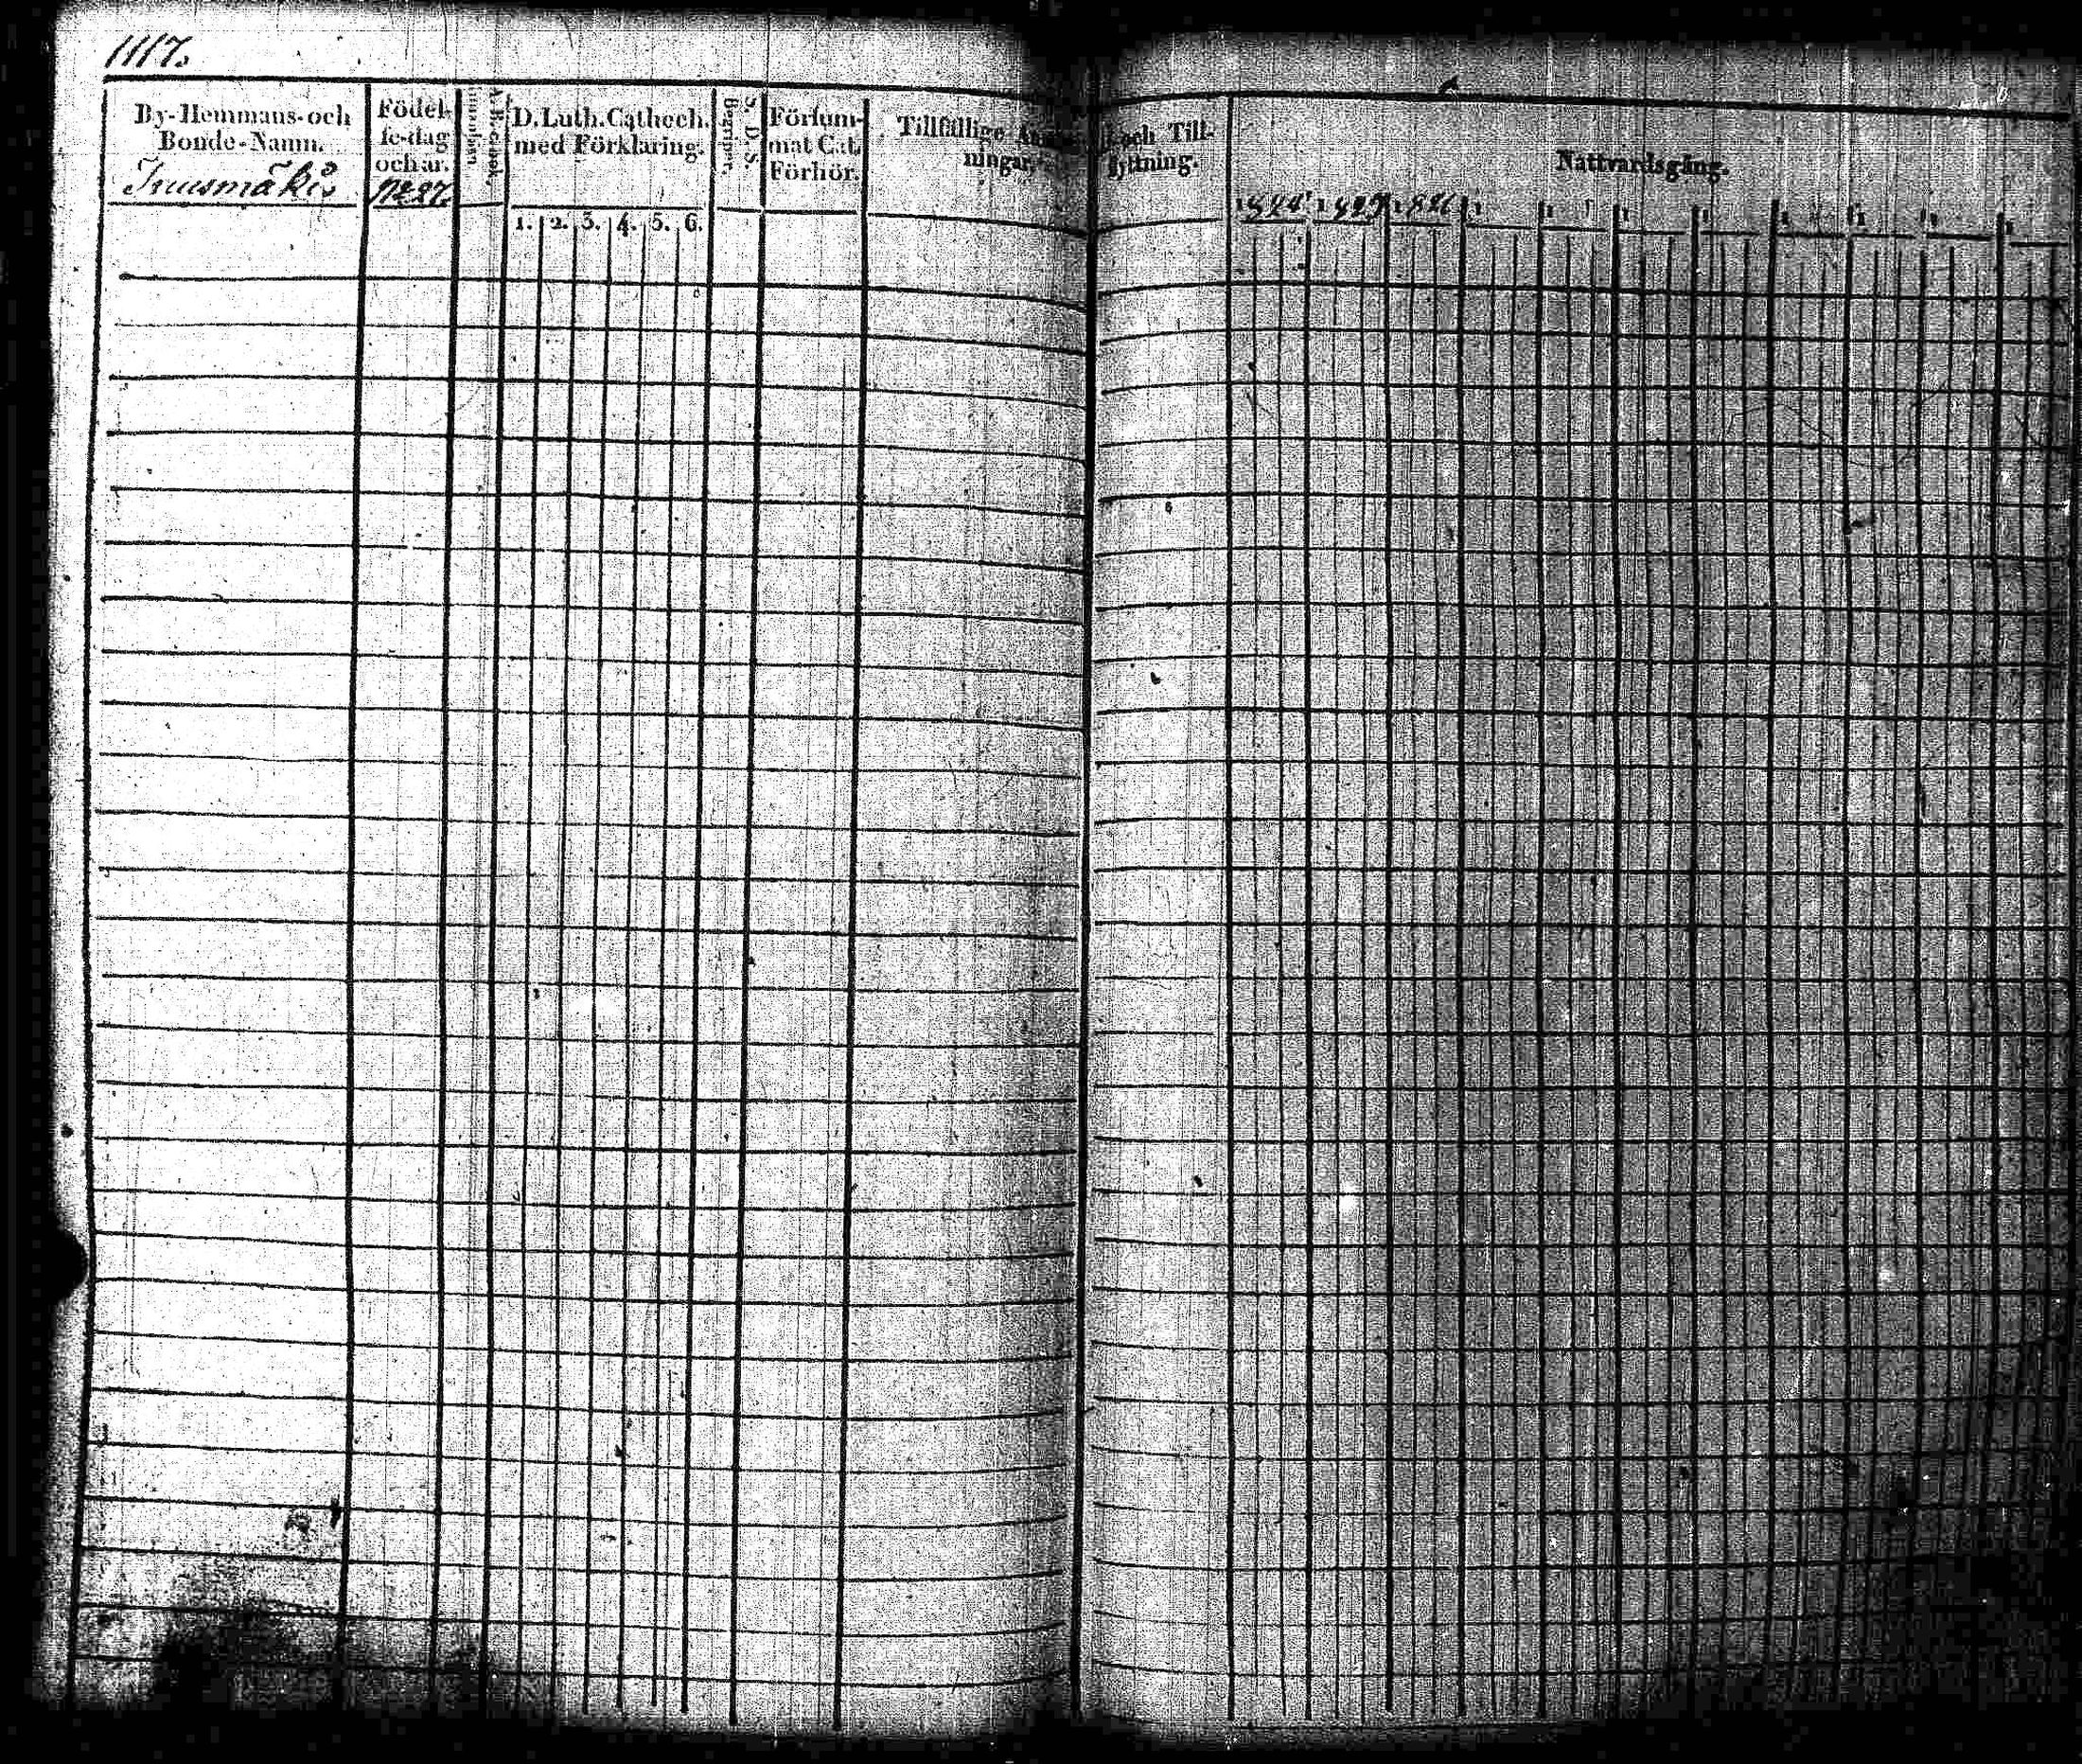 1117.
By-Hemmans-och
Bonde-Namn.
Födel-
se-dag
och ar.
No 27.
A. B. c-bok,
innanläsn.
D. Luth. Cathech.
med Förklaring.
1. 2. 3. 4. 5. 6.
S. D. S.
Begriper.
Försum-
mat Cat.
Förhör.
Tillfällige
ningar,
och Till-
fyttning.
Nattvardsgång.
1
1
1
1
1
1
1
1